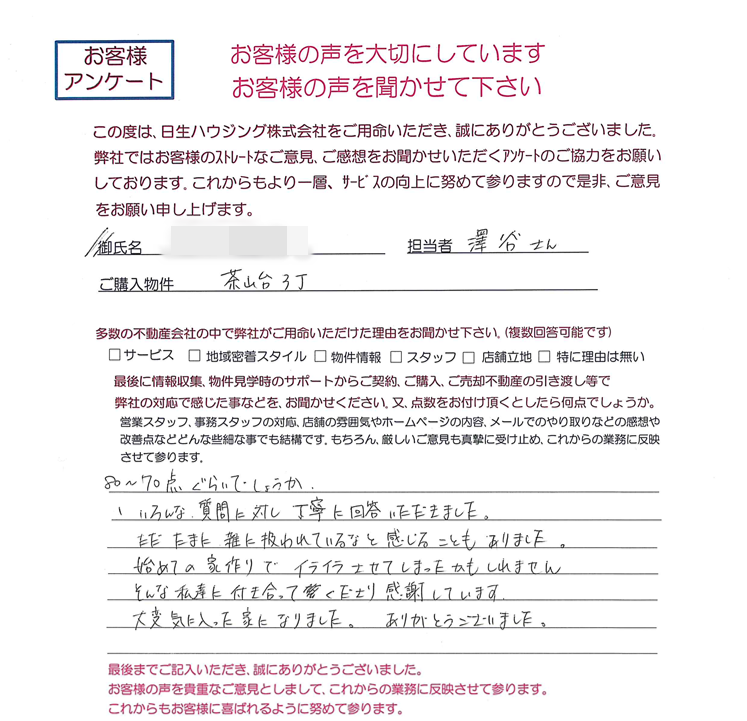 お客様
アンケート
お客様の声を大切にしています
お客様の声を聞かせて下さい
この度は、日生ハウジング株式会社をご用命いただき、誠にありがとうございました。
弊社ではお客様のストレートなご意見、ご感想をお聞かせいただくアンケートのご協力をお願い
しております。これからもより一層、サービスの向上に努めて参りますので是非、ご意見
をお願い申し上げます。
御氏名 担当者 澤谷さん
ご購入物件 茶山台3丁
多数の不動産会社の中で弊社がご用命いただけた理由をお聞かせ下さい。(複数回答可能です)
□サービス □地域密着スタイル □物件情報 □スタッフ □店舗立地 □特に理由は無い
最後に情報収集、物件見学時のサポートからご契約、ご購入、ご売却不動産の引き渡し等で
弊社の対応で感じた事などを、お聞かせください。又、点数をお付け頂くとしたら何点でしょうか。
営業スタッフ、事務スタッフの対応、店舗の雰囲気やホームページの内容、メールでのやり取りなどの感想や
改善点などどんな些細な事でも結構です。もちろん、厳しいご意見も真摯に受け止め、これからの業務に反映
させて参ります。
80〜70点ぐらいでしょうか.
いろんな質問に対し丁寧に回答いただきました。
ただたまに雑に扱われているなと感じることもありました。
始めての家作りでイライラさせてしまったかもしれません
そんな私達に付き合って くださり感謝しています.
大変気に入った家になりました。 ありがとうございました。
最後までご記入いただき、誠にありがとうございました。
お客様の声を貴重なご意見としまして、これからの業務に反映させて参ります。
これからもお客様に喜ばれるように努めて参ります。